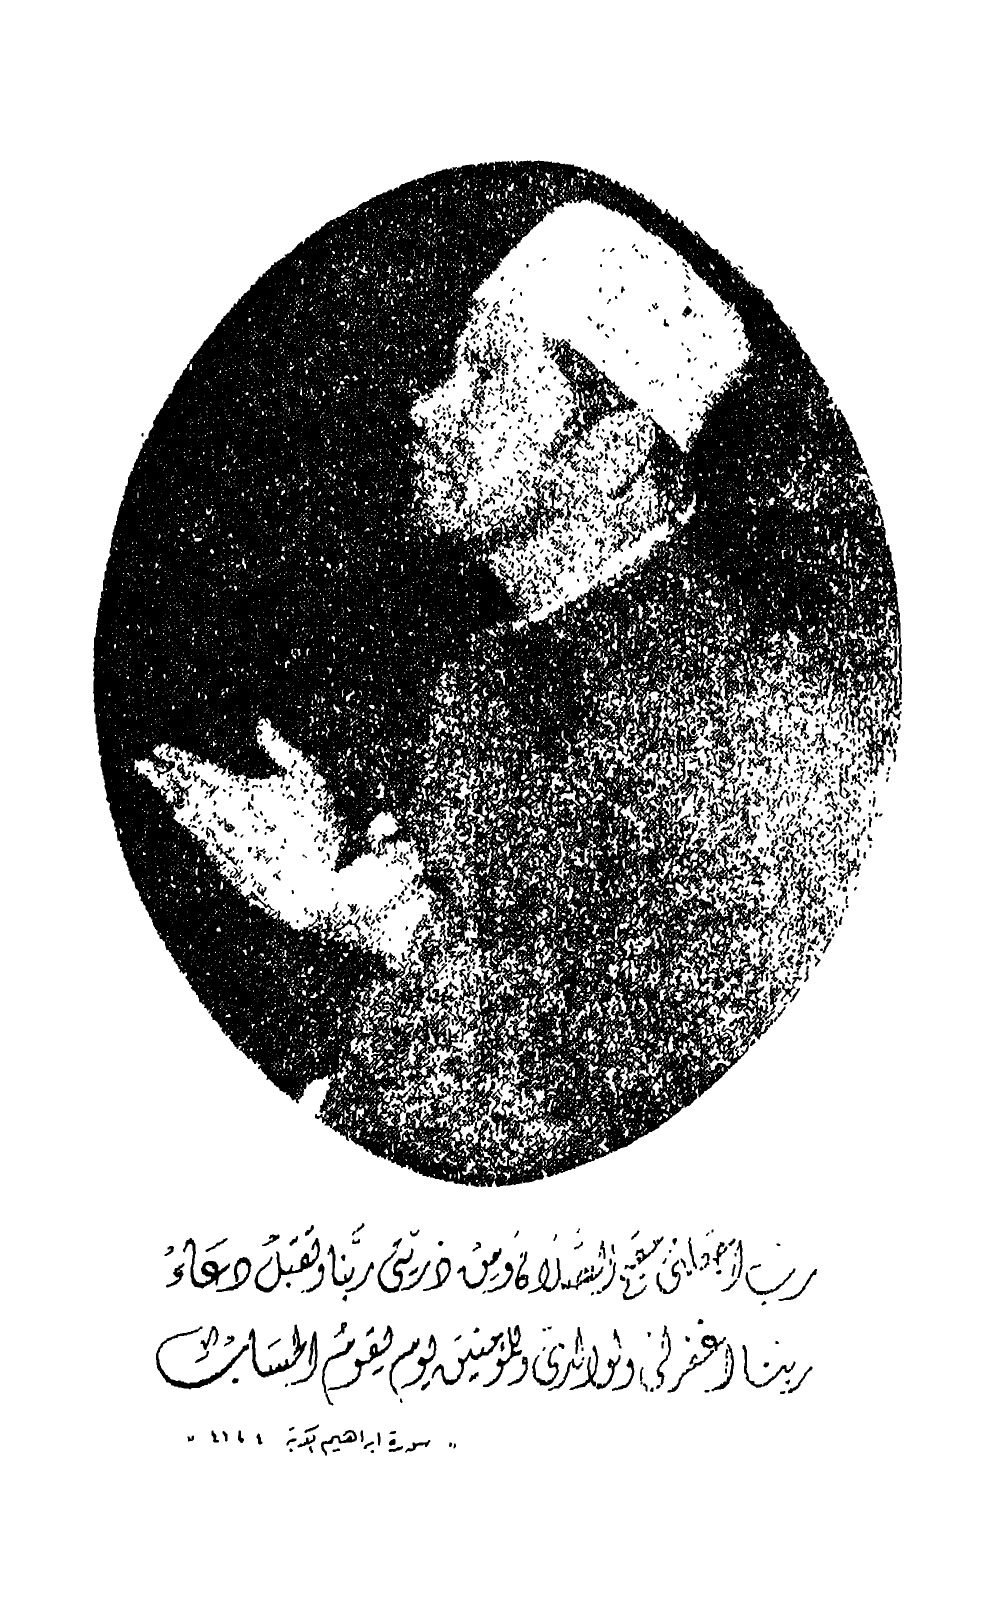 رب اجعلني مقيم الصَّلَاةَ وَمِنْ ذريّتي ربَّنا وتَقبَّلْ دعَاءِ
ربنا اغفرلي ولوالديّ وللمؤمنينَ يوم يقومُ الحِسَابُ
" سورة ابراهيم "